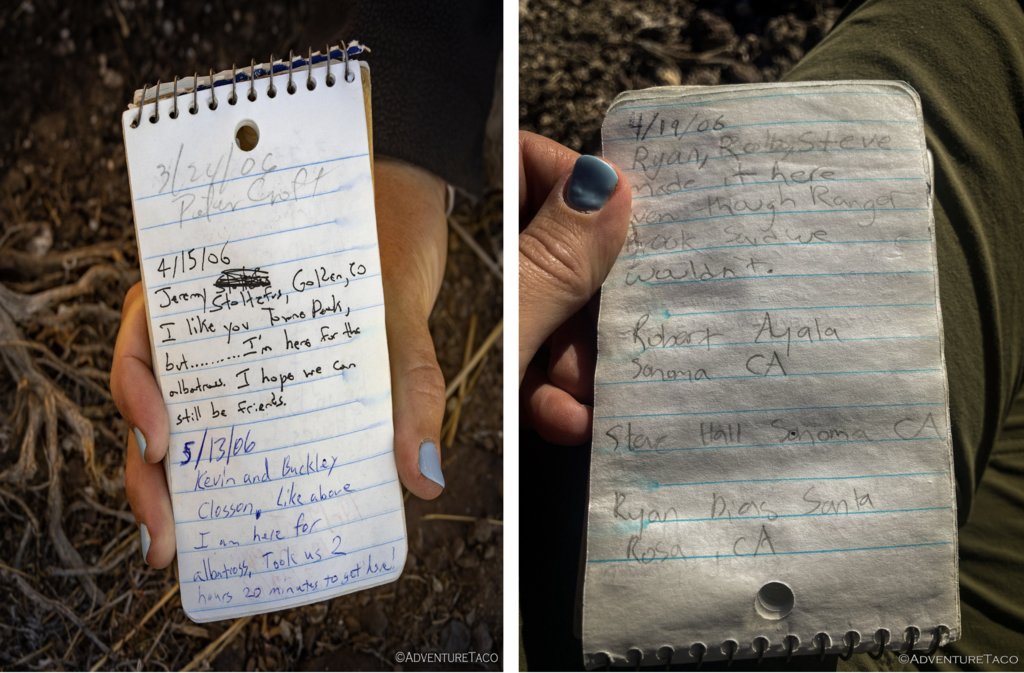 3/24/06
Peter Croft
4/15/06
Jeremy Stoltzfus, Golden, CO
I like you Tommo Pauk,
but..........I'm here for the
albatross. I hope we can
still be friends.
5/13/06
Kevin and Buckley
Closson, Like above
I am here for
albatross, Took us 2
hours 20 minutes to get here!
©ADVENTURETACO
4/19/06
Ryan, Rob, Steve
made it here
even though Ranger
look
wouldn't.
Robert Ayala
Sonoma CA
Steve Hall Sonoma CA
Ryan Dias Santa
Rosa, CA
©ADVENTURETACO